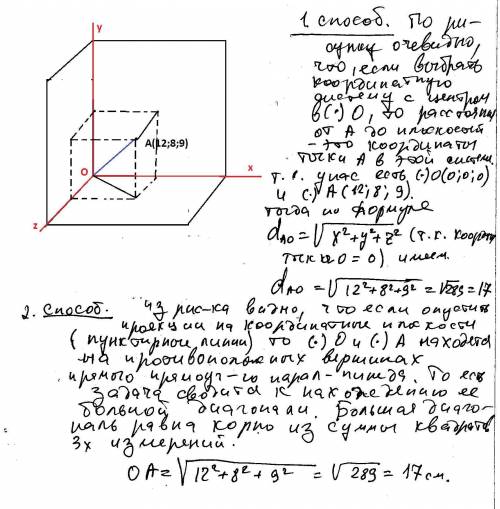 y
A(12;8;9)
O
x
z
1. способ. По ри-
сунку очевидно,
что, если выбрать
координатную
систему с центром
в (·) O, то расстояния
от A до плоскостей
- это координаты
точки A в этой системе.
т.е. у нас есть (·) O(0;0;0)
и (·) A(12;8;9).
тогда по формуле
dAO = √x²+y²+z² (т.к. коорди
точки O = 0) имеем.
dAO = √12²+8²+9² = √289 = 17
2. способ. из рис-ка видно, что если опустить
проекции на координатные плоскости
(пунктирной линии) то (·) O и (·) A находятся
на противоположных вершинах
прямого прямоуг-го парал-пипеда. То есть
задача сводится к нахождению ее
большой диагонали. Большая диаго-
наль равна корню из суммы квадратов
3х измерений.
OA = √12²+8²+9² = √289 = 17 см.